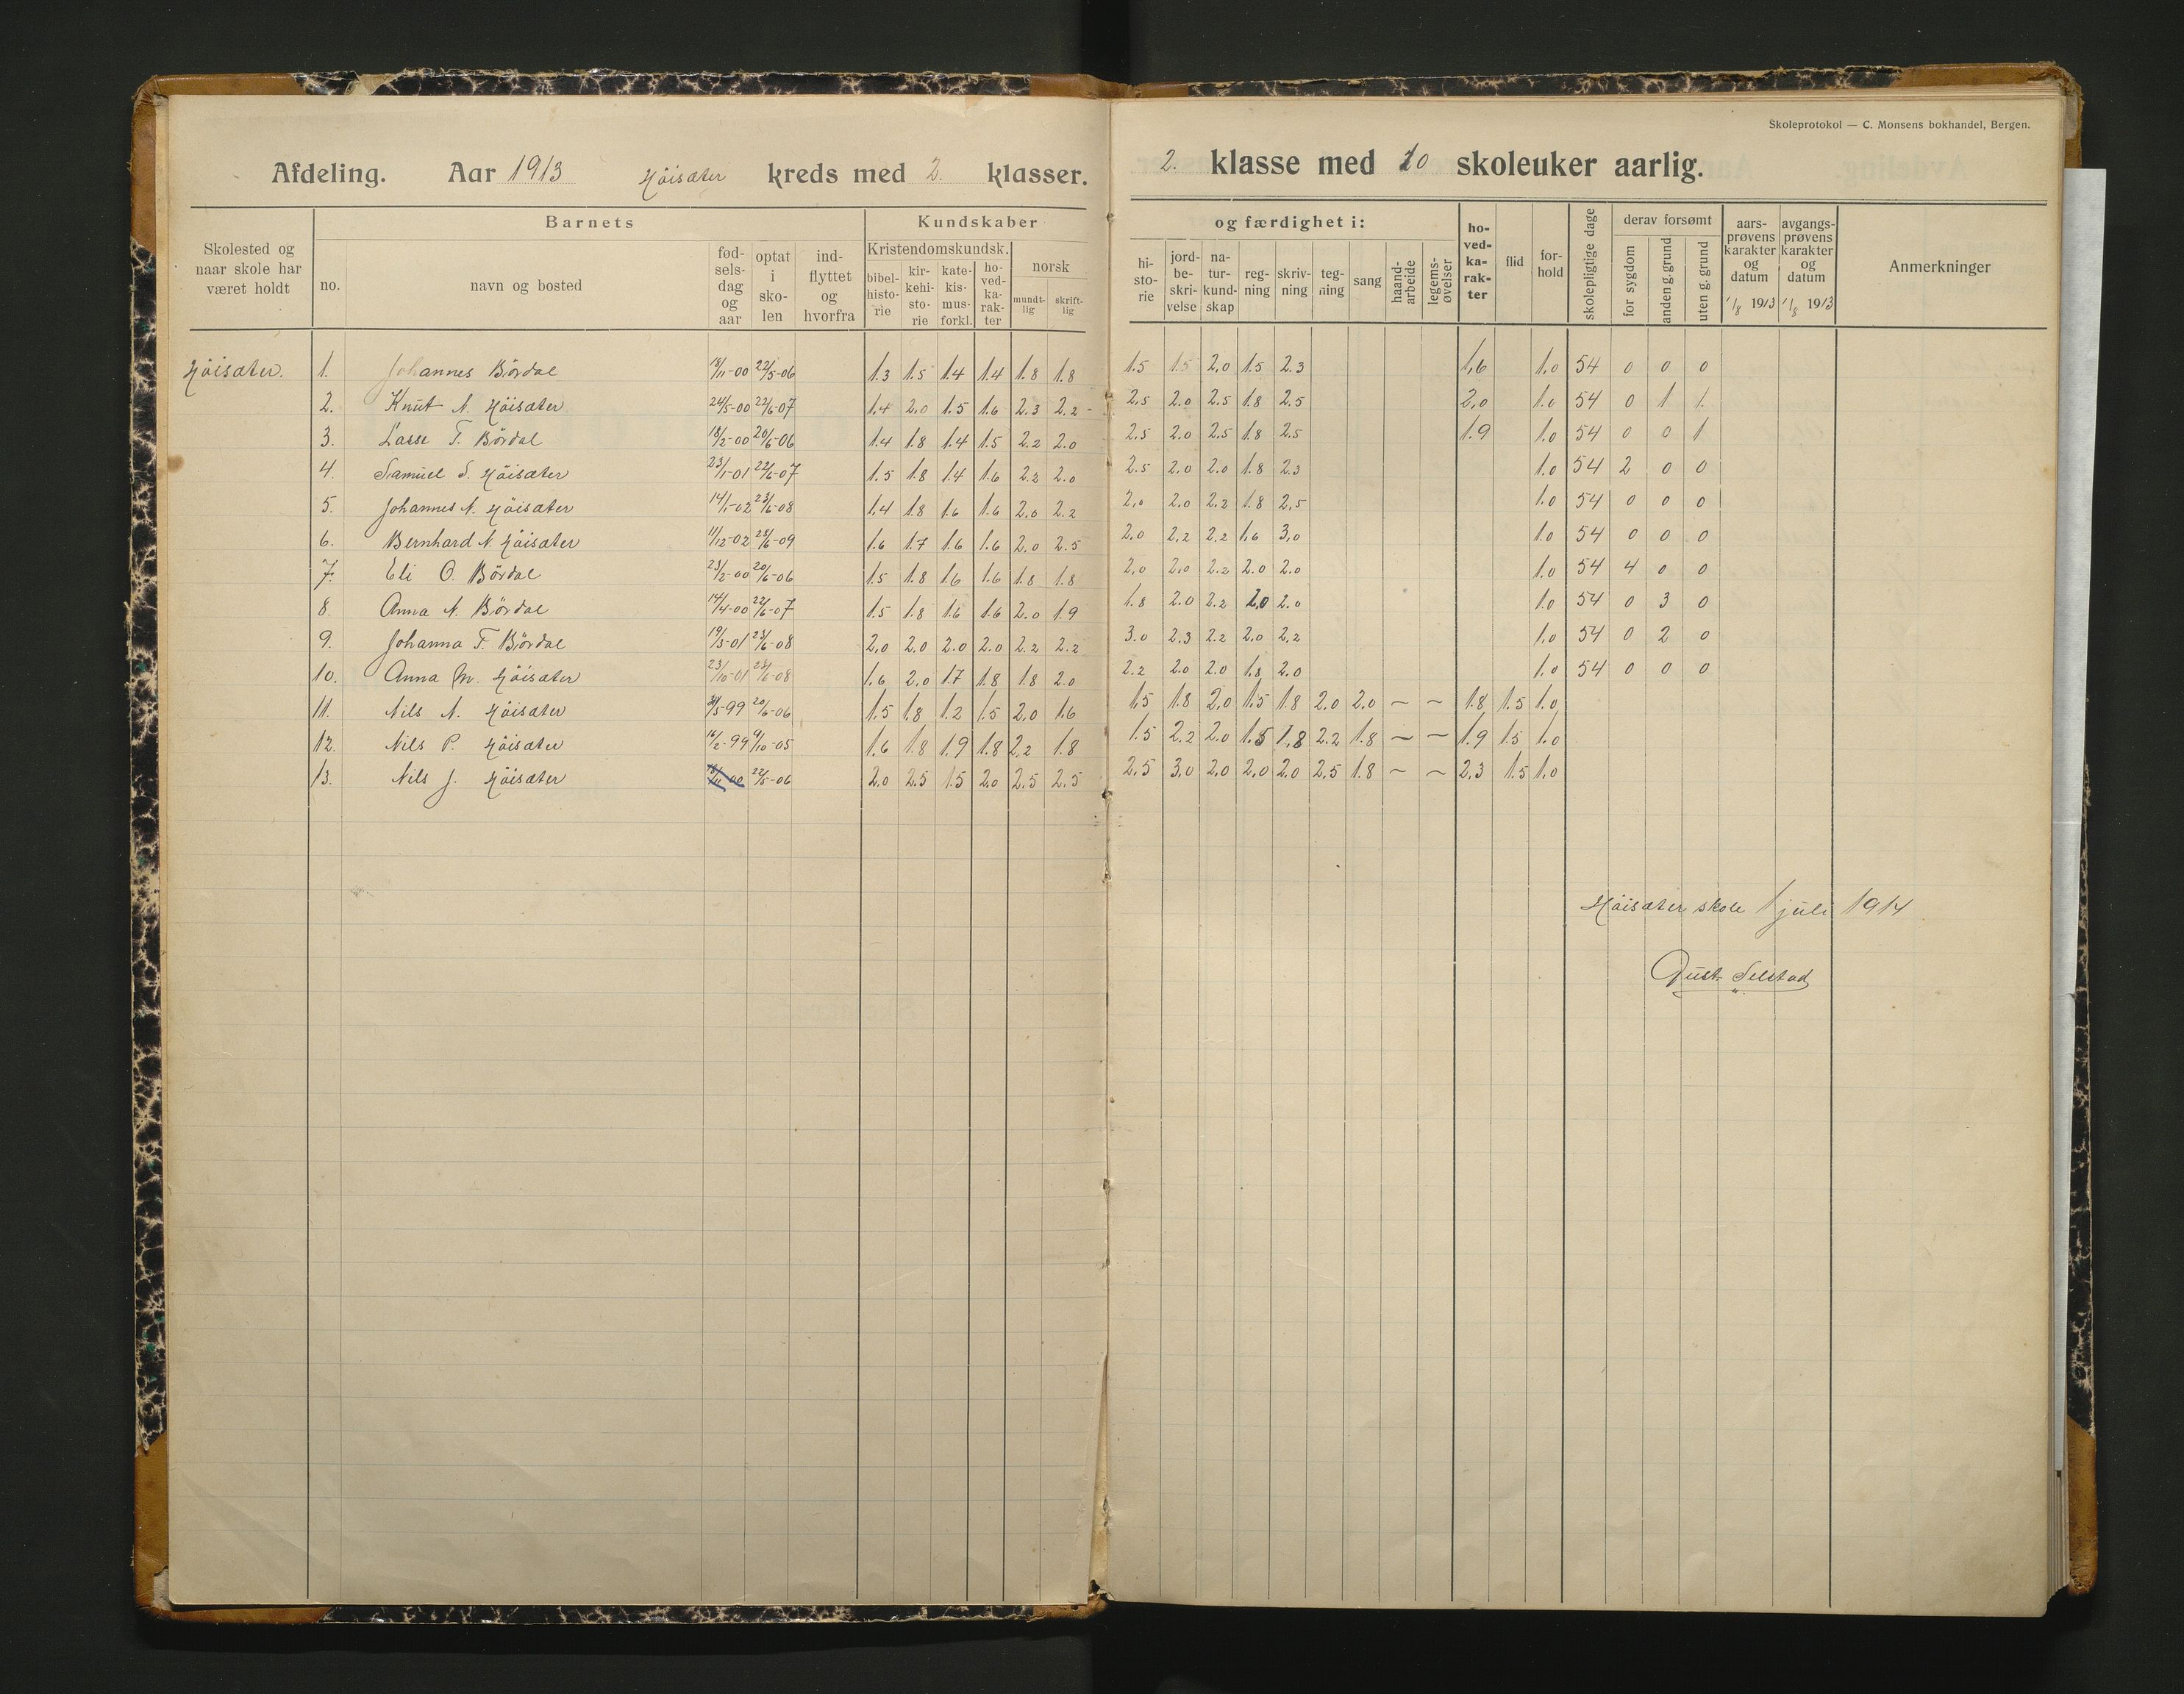 Skoleprotokol — C. Monsens bokhandel, Bergen.
Afdeling. Aar 1913 Höisæter kreds med 2. klasser. 2. klasse med 20 skoleuker aarlig.
Skolested og naar skole har været holdt
Barnets
no.
navn og bosted
fød-sels-dag og aar
optat i sko-len
ind-flyttet og hvorfra
Kundskaber
Kristendomskundsk.
bibel-histo-rie
kir-kehi-sto-rie
kate-kis-mus-forkl.
ho-ved-ka-rak-ter
norsk
mundt-lig
skrift-lig
og færdighet i:
hi-sto-rie
jord-be-skri-velse
na-tur-kund-skap
reg-ning
skriv-ning
teg-ning
sang
haand-arbeide
legems-øvelser
ho-ved-ka-rak-ter
flid
for-hold
skolepligtige dage
derav forsømt
for sygdom
anden g. grund
uten g. grund
aars-prøvens karakter og datum 1/8 1913
avgangs-prøvens karakter og datum 1/8 1913
Anmerkninger
Höisæter. 1. Johannes Bördal 18/11-00 22/5-06 1.3 1.5 1.4 1.4 1.8 1.8 1.5 1.5 2.0 1.5 2.3 1,6 1.0 54 0 0 0
2. Knut N. Höisæter 24/5-00 22/6-07 1.4 2.0 1.5 1.6 2.3 2.2 2.5 2.0 2.5 1.8 2.5 2,0 1.0 54 0 1 1
3. Lasse T. Bördal 18/2-00 20/6-06 1.4 1.8 1.4 1.5 2.2 2.0 2.5 2.0 2.5 1.8 2.5 1.9 1.0 54 0 0 1
4. Samuel S. Höisæter 23/1-01 22/6-07 1.5 1.8 1.4 1.6 2.2 2.0 2.5 2.0 2.0 1.8 2.3 1.0 54 2 0 0
5. Johannes N. Höisæter 14/1-02 23/6-08 1.4 1.8 1.6 1.6 2.0 2.2 2,0 2.0 2.2 1.8 2,5 1.0 54 0 0 0
6. Bernhard N. Höisæter 11/12-02 28/6-09 1.6 1.7 1.6 1.6 2.0 2.5 2,0 2,2 2.2 1,6 3,0 1.0 54 0 0 0
7. Eli O. Bördal 23/2-00 20/6-06 1.5 1.8 1.6 1.6 1.8 1.8 2,0 2.0 2.2 2.0 2.0 1.0 54 4 0 0
8. Anna N. Bördal 14/4-00 22/6-07 1.5 1.8 1.6 1.6 2.0 1.9 1.8 2.0 2.2 2,0 2.0 1.0 54 0 3 0
9. Johanna T. Bördal 19/3-01 23/6-08 2,0 2,0 2.0 2.0 2.2 2.2 3.0 2.3 2.2 2.0 2,2 1.0 54 0 2 0
10. Anna M. Höisæter 23/10-01 23/6-08 1.6 2.0 1.7 1.8 1.8 2.0 2.2 2.0 2.0 1.8 2.0 1.0 54 0 0 0
11. Nils N. Höisæter 5-99 20/6-06 1.5 1.8 1.2 1.5 2,0 1.6 1.5 1.8 2,0 1.5 1.8 2.0 2.0 ~ ~ 1.8 1.5 1.0
12. Nils P. Höisæter 16/2-99 9/10-05 1.6 1.8 1.9 1.8 2.2 1.8 1.5 2.2 2.0 1.5 1,8 2.2 1.8 ~ ~ 1.9 1.5 1.0
13. Nils J. Höisæter 22/5-06 2,0 2.5 1.5 2,0 2.5 2,5 2.5 3,0 2,0 2,0 2.0 2,5 1.8 ~ ~ 2,3 1.5 1.0
Höisæter skole 1 juli 1914
Gust. Selstad